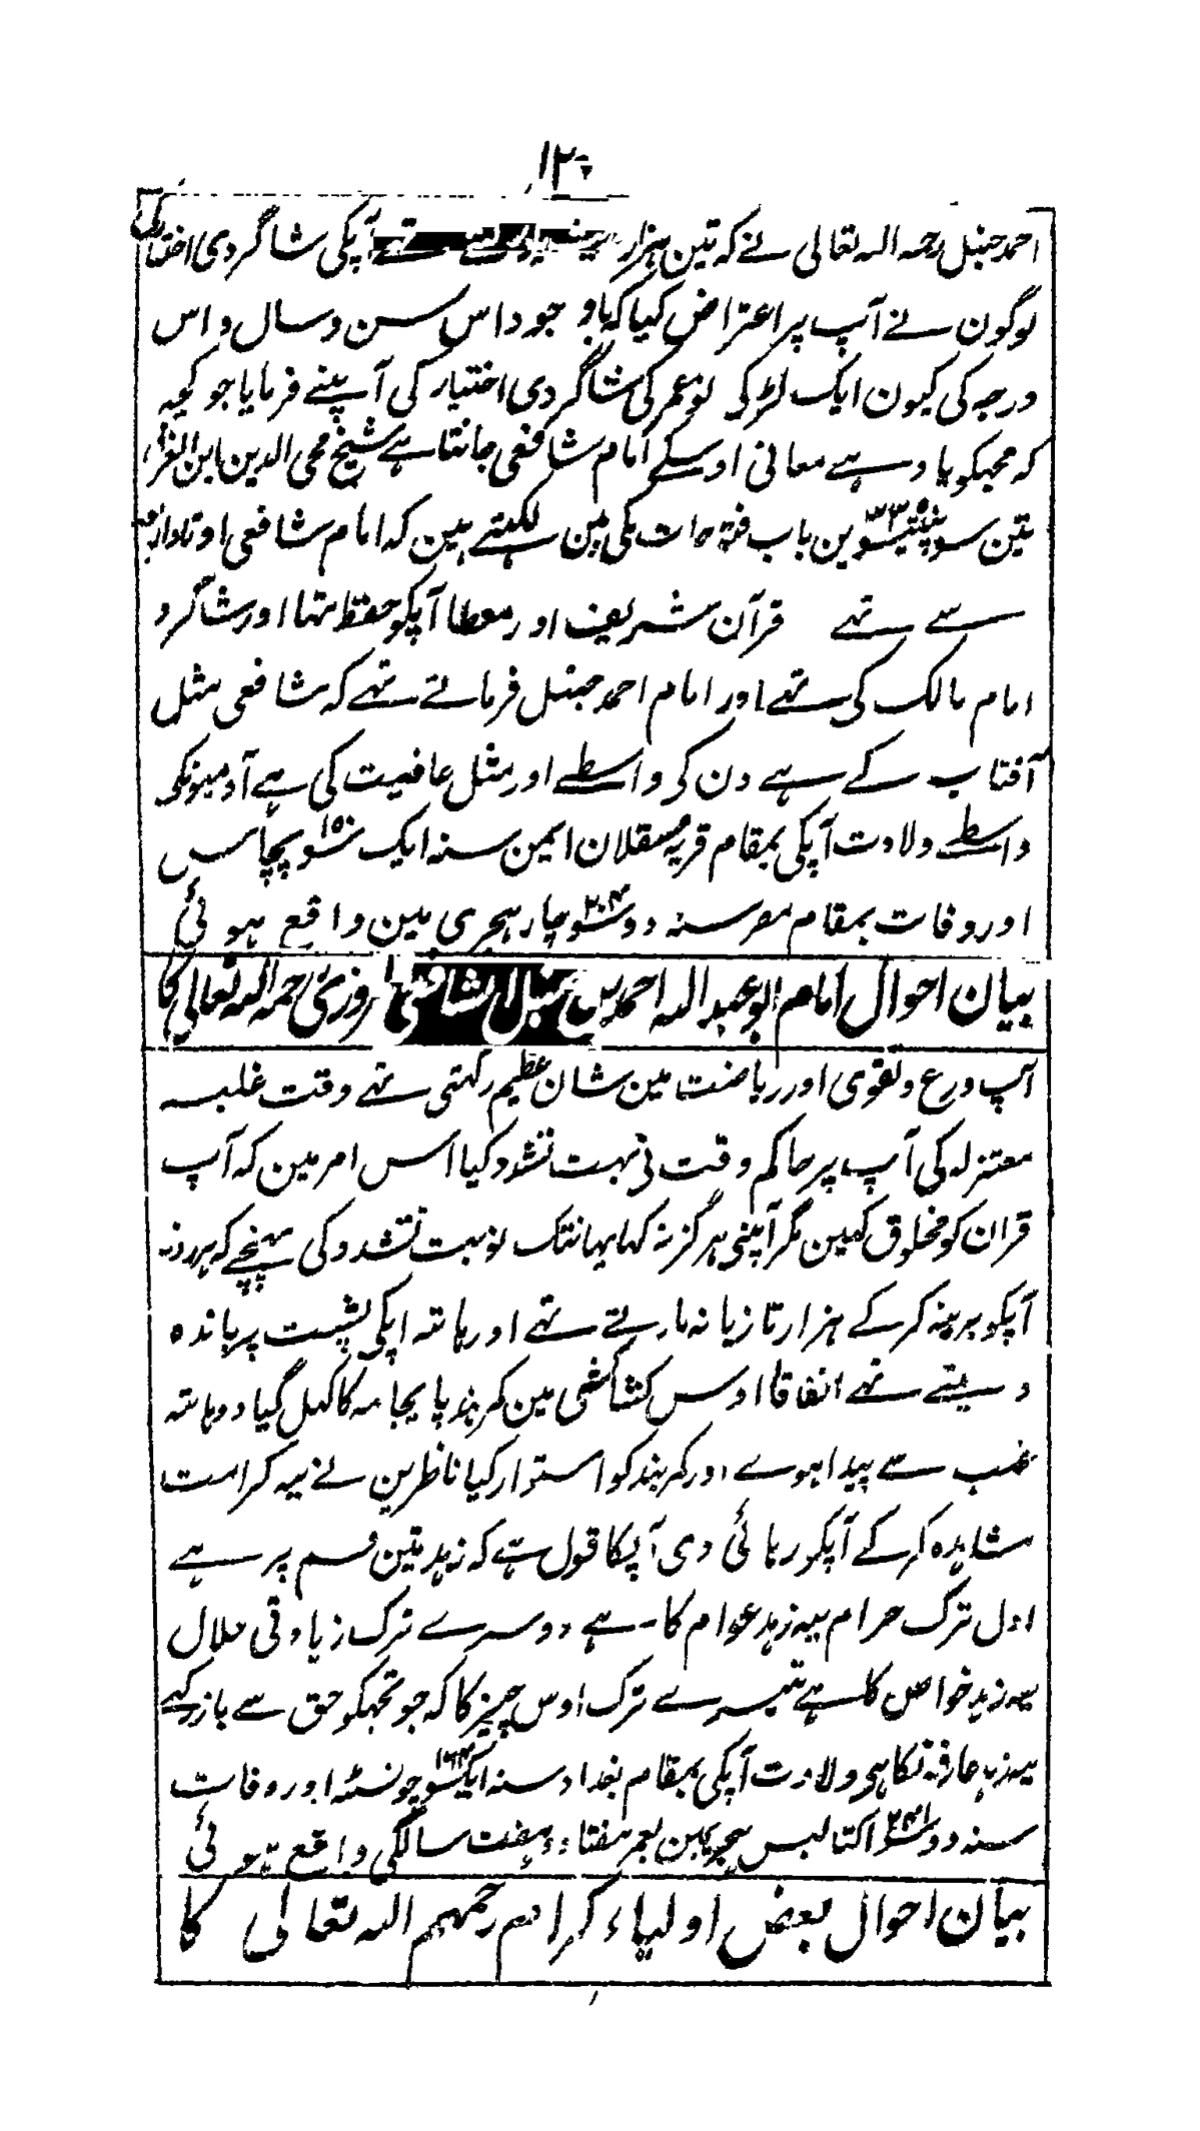 احمد حنبل رحمہ اللہ تعالی نے کہ تین ہزار آپکی شاگردی اختیار کی
لوگون نے آپ پر اعتراض کیا کہ باوجود اس سن و سال و اس
درجہ کی کیون ایک لڑکی نوعمر کی شاگردی اختیار کی آپنے فرمایا جو کچہ
کہ مجہکو یاد ہے معانی اوسکے امام شافعی جانتا ہے شیخ محی الدین ابن
تین سو پینتیسوین باب فتوحات مکی مین لکہتے ہین کہ امام شافعی اوتاد
سے تہے قرآن شریف اور موطا آپکو حفظ تہا اور شاگرد
امام مالک کی تہے اور امام احمد حنبل فرماتے تہے کہ شافعی مثل
آفتاب کے ہے دن کی واسطے اور مثل عافیت کی ہے آدمیونکی
واسطے ولادت آپکی بمقام قریہ عسقلان یمن سنہ ایک سو ۱۵۰ پچاس
اور وفات بمقام مصر سنہ دوسو ۲۰۴ چار ہجری مین واقع ہوئی
بیان احوال امام ابو عبد اللہ احمد بن رحمہ اللہ تعالی کا
آپ ورع و تقوی اور ریاضت مین شان عظیم رکہتی تہے وقت غلبہ
معتزلہ کی آپ پر حاکم وقت نی بہت تشدد کیا اس امر مین کہ آپ
قران کو مخلوق کہین مگر آپنی ہرگز نہ کہا یہانتک نوبت تشدد کی پہنچے کہ ہر روز
آپکو برہنہ کر کے ہزار تازیانہ مارتے تہے اور ہاتہ اپکی پشت پر باندہ
دیتے تہے اتفاقا اوس کشاکشی مین کمربند پایجامہ کا کہل گیا دو ہاتہ
غیب سے پیدا ہوے اور کمربند کو استوار کیا ناظرین نے یہ کرامت
مشاہدہ کر کے آپکو رہائی دی آپکا قول ہے کہ زہد تین قسم پر ہے
اول ترک حرام یہ زہد عوام کا ہے دوسرے ترک زیادتی حلال
یہ زہد خواص کا ہے تیسرے ترک اوس چیز کا کہ جو تجہکو حق سے باز رکہے
یہ زہد عارفونکا ہی ولادت آپکی بمقام بغداد سنہ ایکسو ۱۶۴ چونسٹہ اور وفات
سنہ دوسو ۲۴۱ اکتالیس ہجری مین بعمر ہفتاد و ہفت سالگی واقع ہوئی
بیان احوال بعض اولیاء کرام رحمہم اللہ تعالی کا